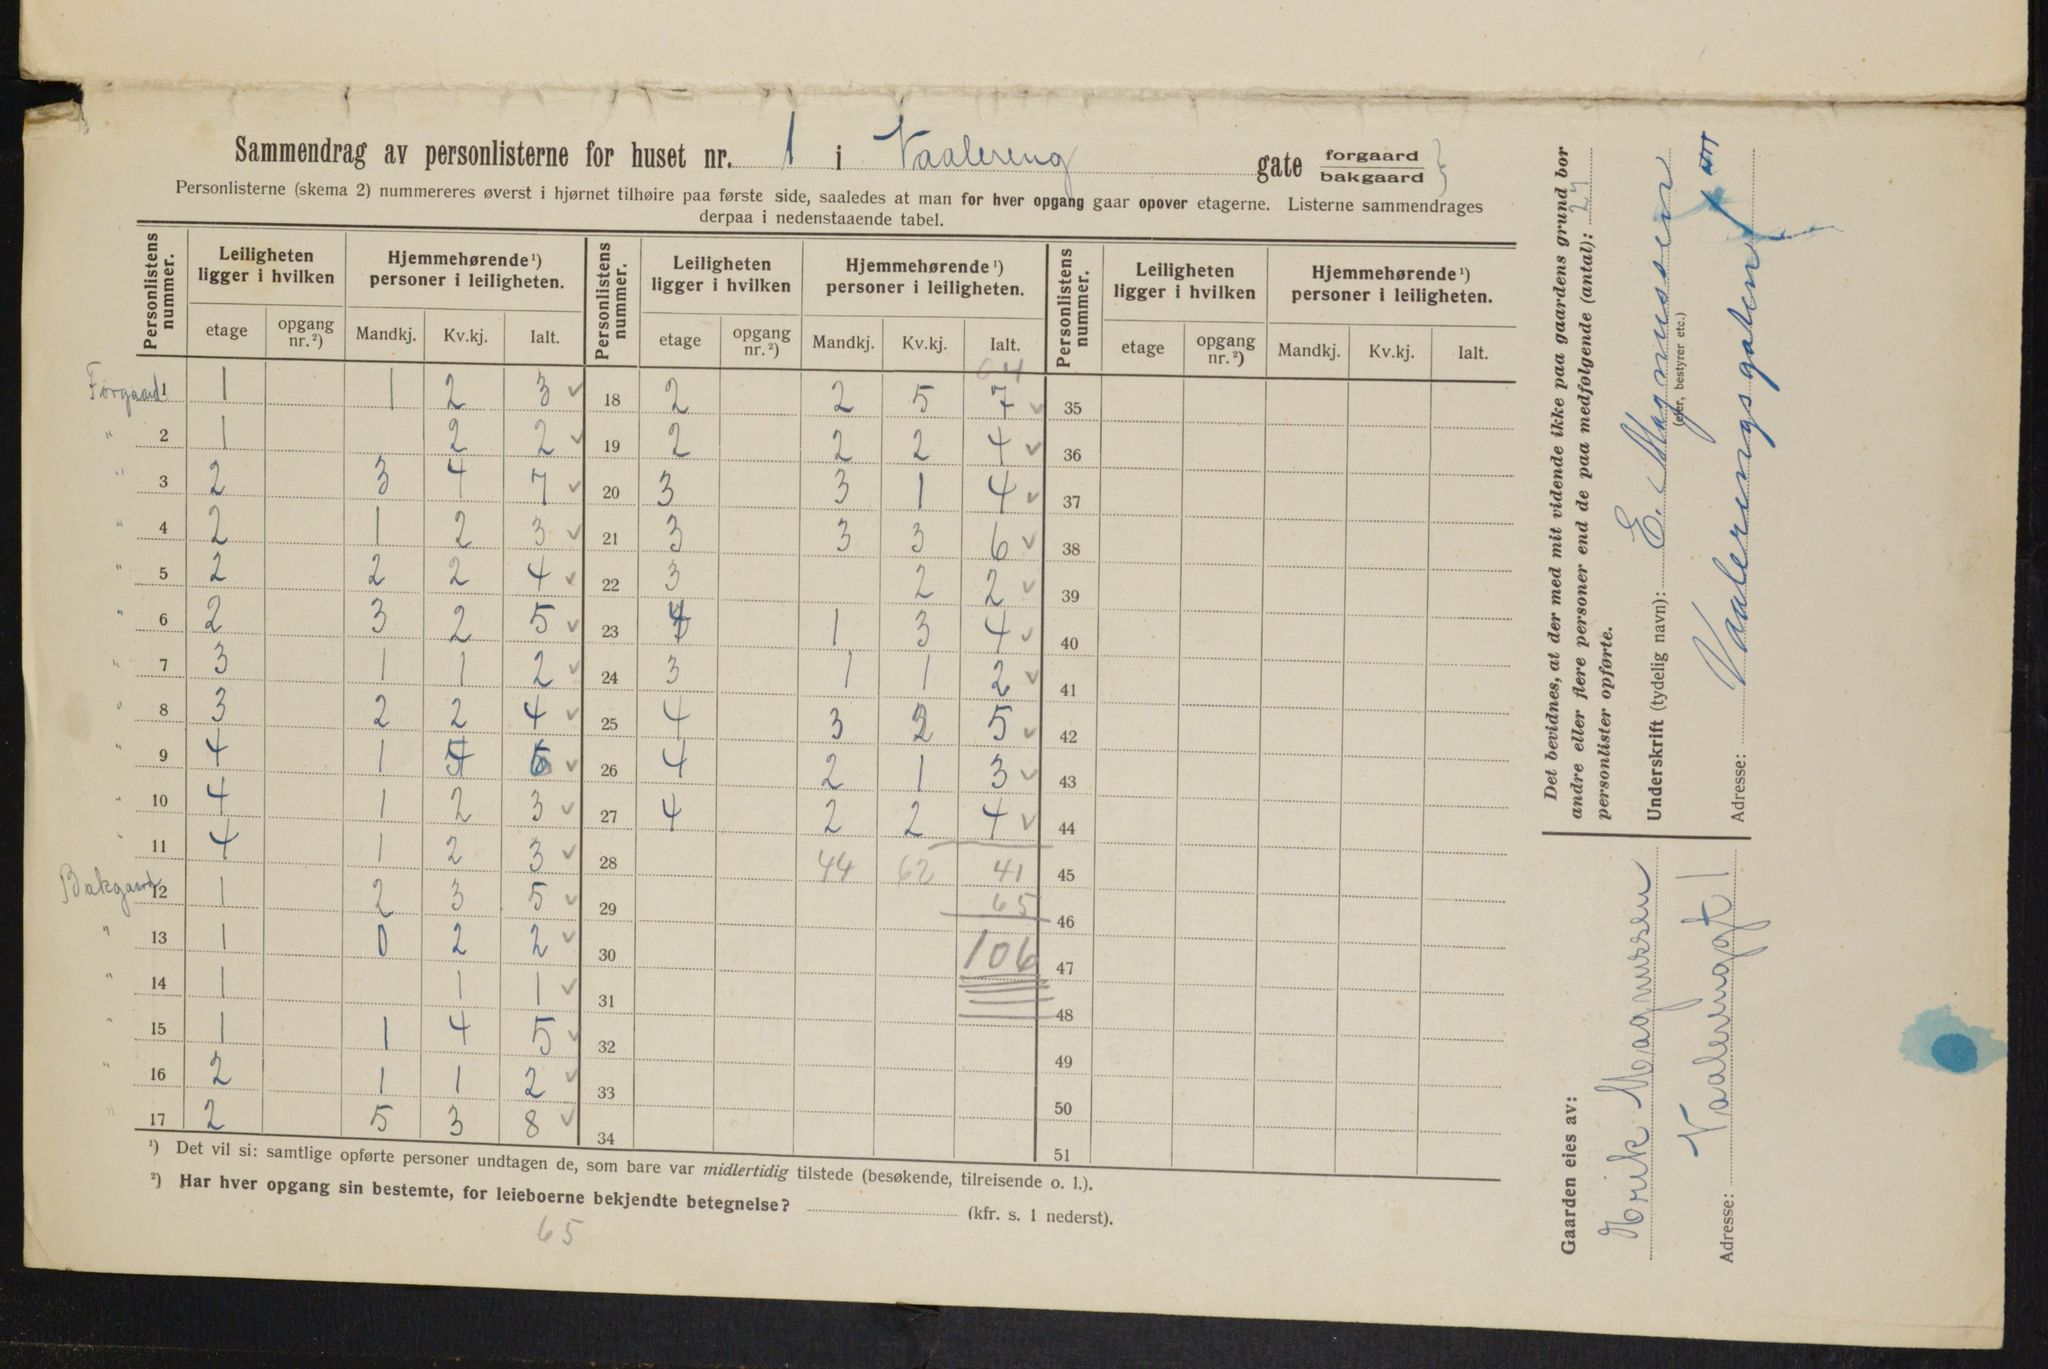 Sammendrag av personlisterne for huset nr. 1 i Vaalereng gate forgaard bakgaard }
Personlisterne (skema 2) nummereres øverst i hjørnet tilhøire paa første side, saaledes at man for hver opgang gaar opover etagerne. Listerne sammendrages
derpaa i nedenstaaende tabel.
Personlistens nummer. | Leiligheten ligger i hvilken | Hjemmehørende ¹) personer i leiligheten. | Personlistens nummer. | Leiligheten ligger i hvilken | Hjemmehørende ¹) personer i leiligheten. | Personlistens nummer. | Leiligheten ligger i hvilken | Hjemmehørende ¹) personer i leiligheten.
etage | opgang nr. ²) | Mandkj. | Kv.kj. | Ialt. | etage | opgang nr. ²) | Mandkj. | Kv.kj. | Ialt. | etage | opgang nr. ²) | Mandkj. | Kv.kj. | Ialt.
Forgaard 1 | 1 | 1 | 2 | 3 ✓ | 18 | 2 | 2 | 5 | 7 ✓ | 35
" 2 | 1 | 2 | 2 ✓ | 19 | 2 | 2 | 2 | 4 ✓ | 36
" 3 | 2 | 3 | 4 | 7 ✓ | 20 | 3 | 3 | 1 | 4 ✓ | 37
" 4 | 2 | 1 | 2 | 3 ✓ | 21 | 3 | 3 | 3 | 6 ✓ | 38
" 5 | 2 | 2 | 2 | 4 ✓ | 22 | 3 | 2 | 2 ✓ | 39
" 6 | 2 | 3 | 2 | 5 ✓ | 23 | 1 | 3 | 4 ✓ | 40
" 7 | 3 | 1 | 1 | 2 ✓ | 24 | 3 | 1 | 1 | 2 ✓ | 41
" 8 | 3 | 2 | 2 | 4 ✓ | 25 | 4 | 3 | 2 | 5 ✓ | 42
" 9 | 4 | 1 | 5 | 6 ✓ | 26 | 4 | 2 | 1 | 3 ✓ | 43
" 10 | 4 | 1 | 2 | 3 ✓ | 27 | 4 | 2 | 2 | 4 ✓ | 44
" 11 | 4 | 1 | 2 | 3 ✓ | 28 | 44 | 62 | 41 | 45
Bakgaard 12 | 1 | 2 | 3 | 5 ✓ | 29 | 65 | 46
" 13 | 1 | 0 | 2 | 2 ✓ | 30 | 106 | 47
" 14 | 1 | 1 | 1 ✓ | 31 | 48
" 15 | 1 | 1 | 4 | 5 ✓ | 32 | 49
" 16 | 2 | 1 | 1 | 2 ✓ | 33 | 50
" 17 | 2 | 5 | 3 | 8 ✓ | 34 | 51
¹) Det vil si: samtlige opførte personer undtagen de, som bare var midlertidig tilstede (besøkende, tilreisende o. l.).
²) Har hver opgang sin bestemte, for leieboerne bekjendte betegnelse? (kfr. s. 1 nederst).
65
Det bevidnes, at der med mit vidende ikke paa gaardens grund bor
andre eller flere personer end de paa medfølgende (antal): 27
personlister opførte.
Underskrift (tydelig navn): E. Magnussen
(eier, bestyrer etc.)
Adresse: Vaaleringsgaten 1
Gaarden eies av:
Erik Magnussen
Adresse: Vaalerenggt 1